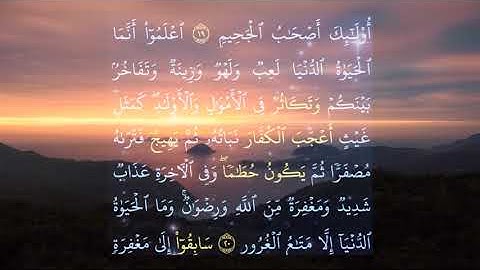 أُوْلَٰٓئِكَ أَصۡحَٰبُ ٱلۡجَحِيمِ ١٩ ٱعۡلَمُوٓاْ أَنَّمَا
ٱلۡحَيَوٰةُ ٱلدُّنۡيَا لَعِبٞ وَلَهۡوٞ وَزِينَةٞ وَتَفَاخُرُۢ
بَيۡنَكُمۡ وَتَكَاثُرٞ فِي ٱلۡأَمۡوَٰلِ وَٱلۡأَوۡلَٰدِۖ كَمَثَلِ
غَيۡثٍ أَعۡجَبَ ٱلۡكُفَّارَ نَبَاتُهُۥ ثُمَّ يَهِيجُ فَتَرَىٰهُ
مُصۡفَرّٗا ثُمَّ يَكُونُ حُطَٰمٗاۖ وَفِي ٱلۡأٓخِرَةِ عَذَابٞ
شَدِيدٞ وَمَغۡفِرَةٞ مِّنَ ٱللَّهِ وَرِضۡوَٰنٞۚ وَمَا ٱلۡحَيَوٰةُ
ٱلدُّنۡيَآ إِلَّا مَتَٰعُ ٱلۡغُرُورِ ٢٠ سَابِقُوٓاْ إِلَىٰ مَغۡفِرَةٖ